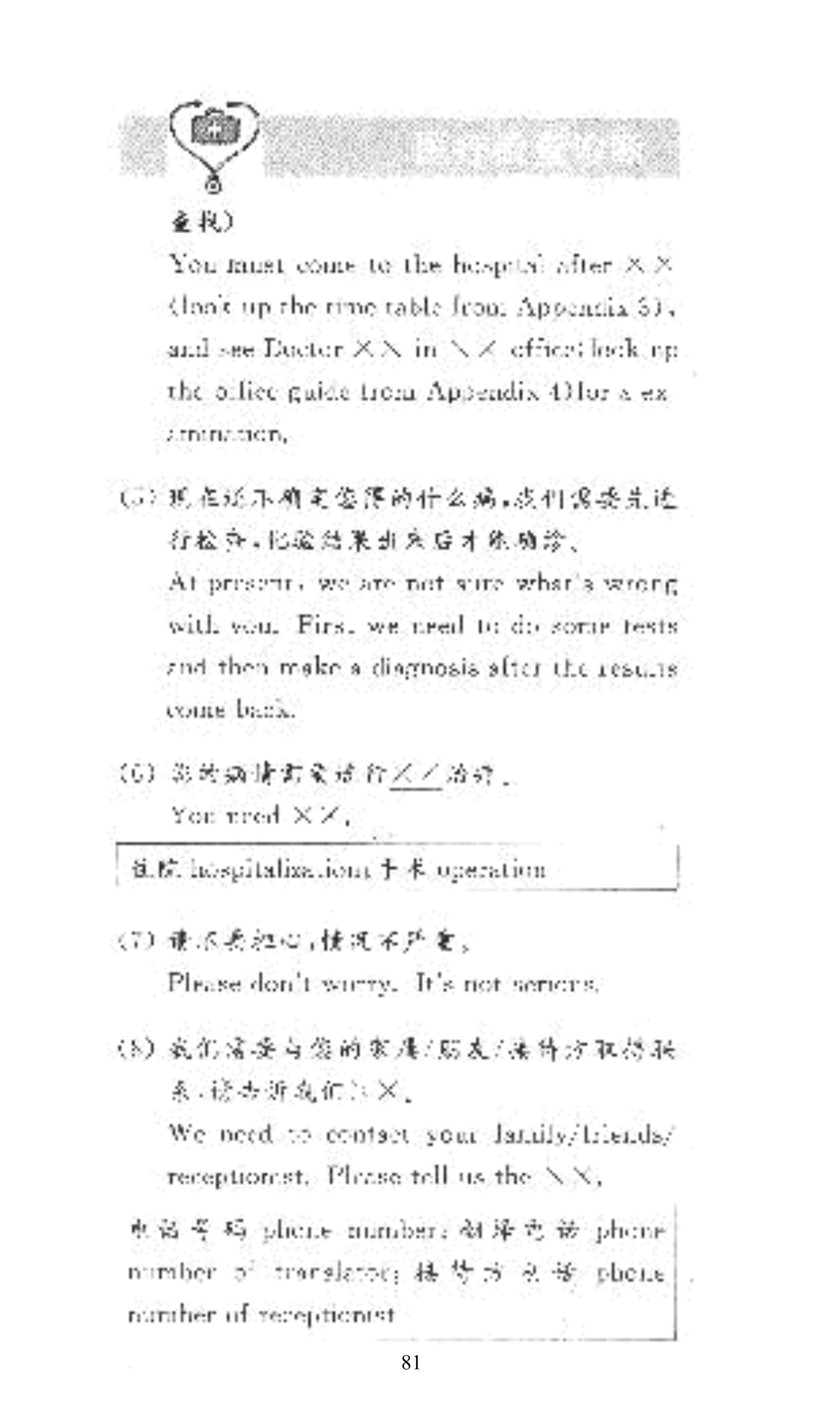 查找）
You must come to the hospital after ××
(look up the time table from Appendix 3),
and see Doctor ×× in ×× office(look up
the office guide from Appendix 4)for a ex-
amination.
(5) 现在还不确定您得的什么病，我们需要先进
行检查，化验结果出来后才能确诊。
At present, we are not sure what's wrong
with you. First we need to do some tests
and then make a diagnosis after the results
come back.
(6) 您的病情需要进行××治疗。
You need ××.
住院 hospitalization; 手术 operation
(7) 请不要担心，情况不严重。
Please don't worry. It's not serious.
(8) 我们需要与您的家属/朋友/接待方取得联
系，请告诉我们××。
We need to contact your family/friends/
receptionist. Please tell us the ××.
电话号码 phone number; 翻译电话 phone
number of translator; 接待方电话 phone
number of receptionist
81